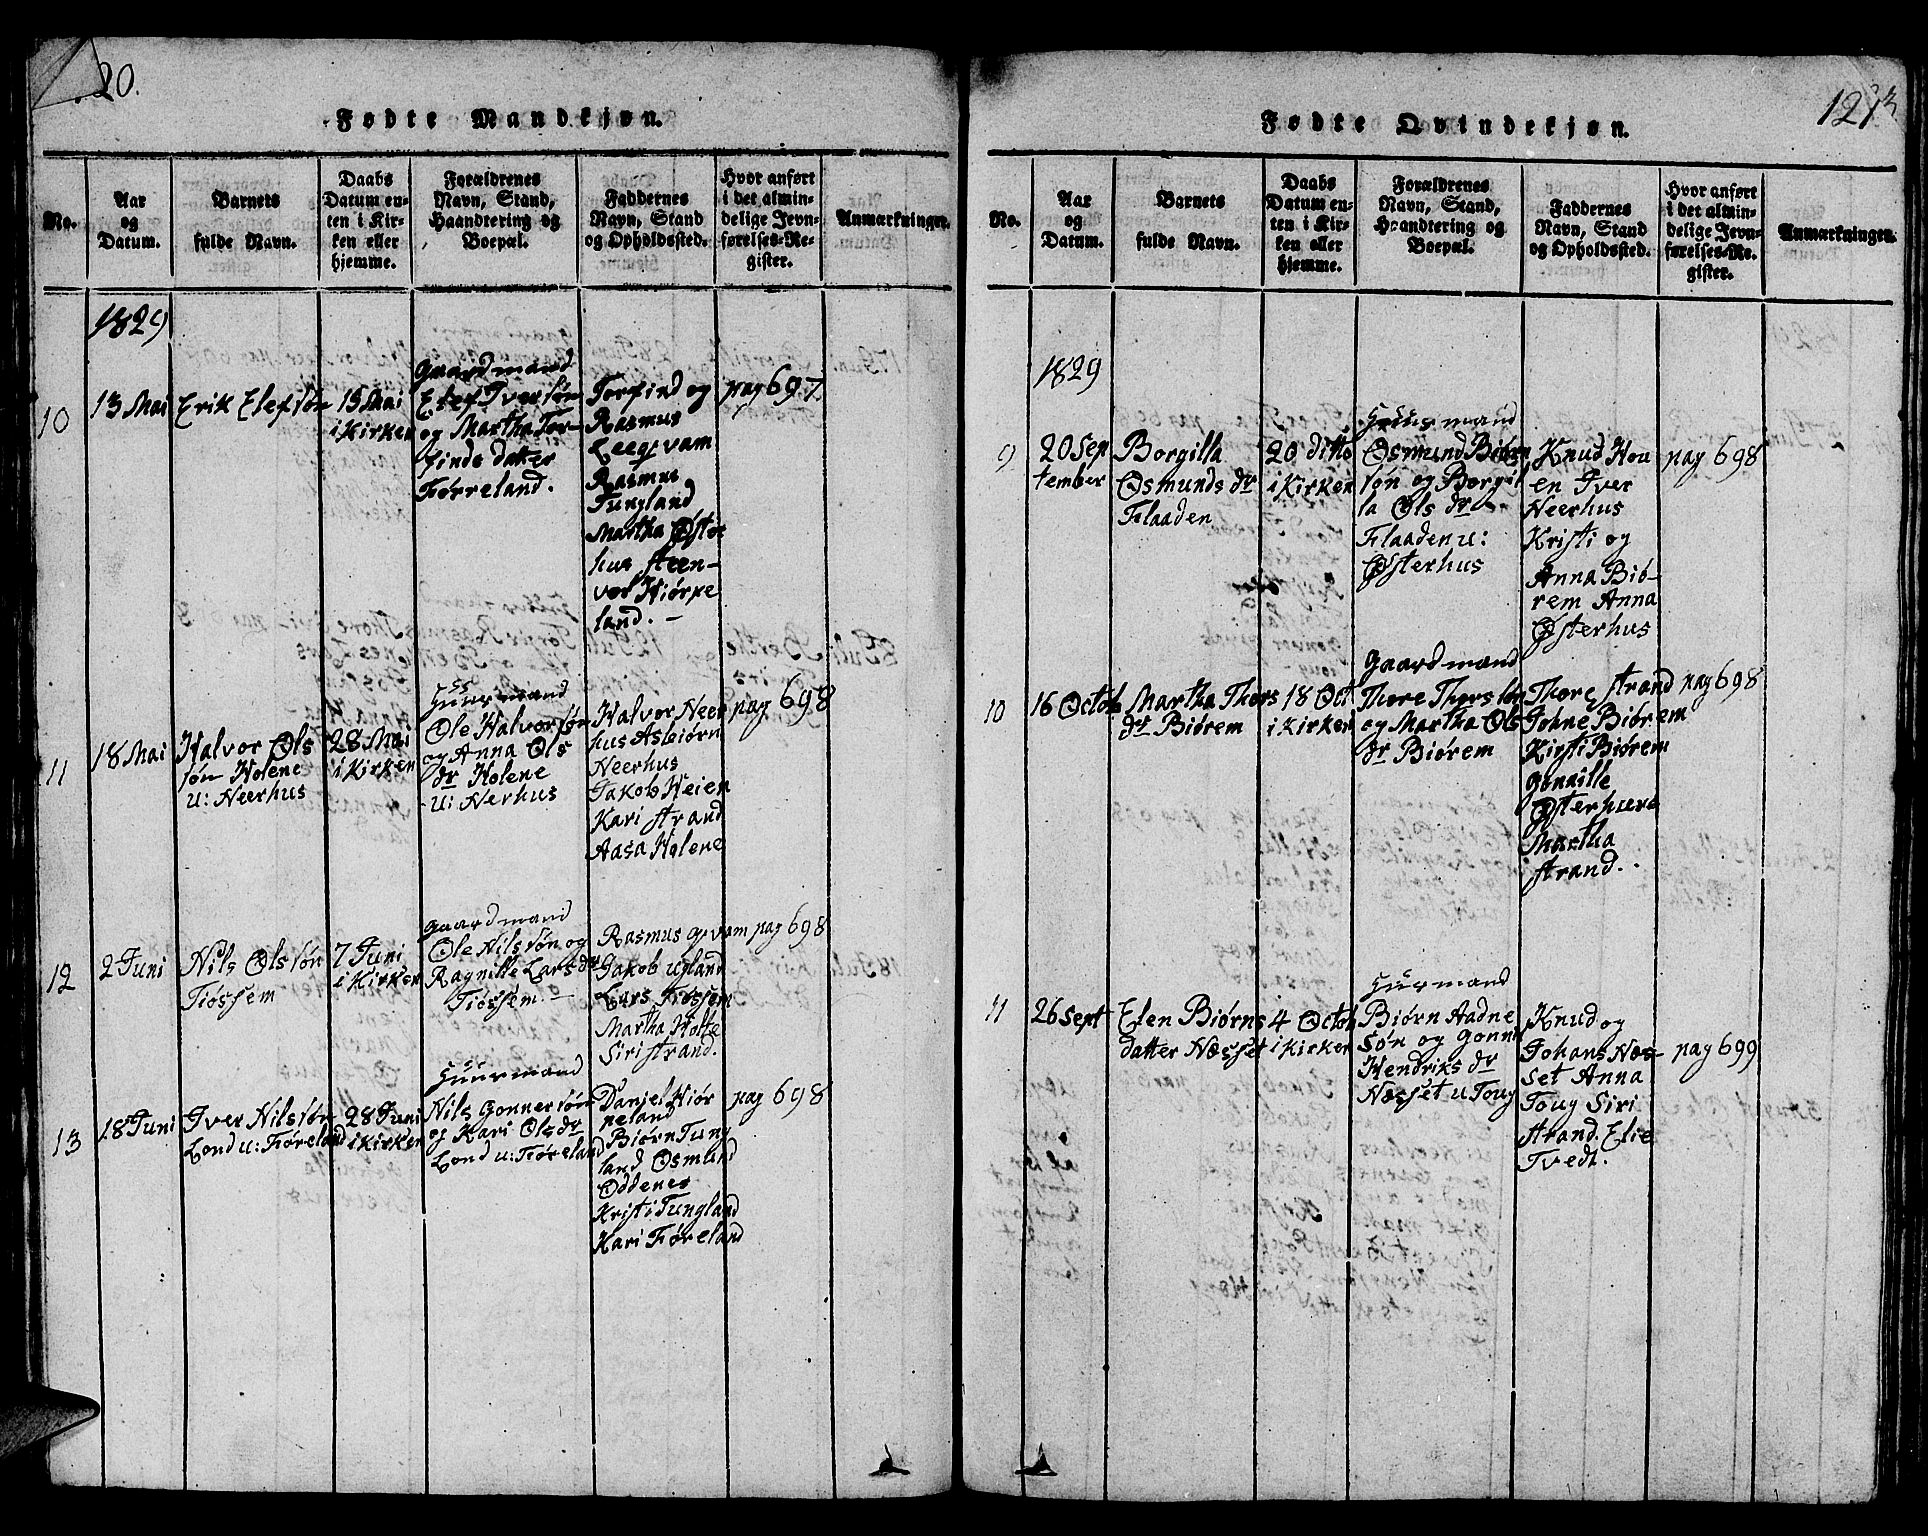 20.
Fødte Mandkjøn.
No.
Aar
og
Datum.
Barnets
fulde Navn.
Daabs
Datum en-
ten i Kir-
ken eller
hjemme.
Forældrenes
Navn, Stand,
Haandtering og
Boepæl.
Faddernes
Navn, Stand
og Opholdssted.
Hvor anført
i det almin-
delige Jevn-
førelses-Re-
gister.
Anmærkninger.
1829
10
13 Mai
Erik Elefsøn
15 Mai
i Kirken
Gaardmand
Elef Iversøn
og Martha Tor-
finds datter
Førreland.
Torfind og
Rasmus
Leeqvam
Rasmus
Tungland
Martha Øster
hus Steen-
vor Hiørpe
land. -
pag 697
11
18 Mai
Halvor Ols
søn Holene
u: Neerhus
28 Mai
i Kirken
Huusmand
Ole Halvorsøn
og Anna Ols
dr Holene
u: Nerhus
Halvor Neer
hus Asbiørn
Neerhus
Jakob Heien
Kari Strand
Aasa Holene
pag 698
12
2 Juni
Nils Olssøn
Tiøssem
7 Juni
i Kirken
Gaardmand
Ole Nilssøn og
Ragnille Larsdr
Tiøssem. -
Rasmus qvam
Jakob Ugland
Lars Tiøssem
Martha Holte
Siri Strand.
pag 698
13
18 Juni
Iver Nilssøn
Lond u: Føreland
28 Juni
i Kirken
Huusmand
Nils Gonnersøn
og Kari Olsdr
Lond u: Føreland
Daniel Hiør
peland
Biørn Tung
land Osmund
Oddenes
Kristi Tungland
Kari Føreland
pag 698
121
Fødte Qvindekjøn.
No.
Aar
og
Datum.
Barnets
fulde Navn.
Daabs
Datum en-
ten i Kir-
ken eller
hjemme.
Forældrenes
Navn, Stand,
Haandtering og
Boepæl.
Faddernes
Navn, Stand
og Opholdssted.
Hvor anført
i det almin-
delige Jevn-
førelses-Re-
gister.
Anmærkninger.
1829
9
20 Sep
tember
Borgilla
Osmunds dr
Flaaden
20 ditto
i Kirken
Huusmand
Osmund Biørn
søn og Borgil
la Ols dr
Flaaden u:
Østerhus
Knud Hou
en Iver
Neerhus
Kristi og
Anna Biò-
rem Anna
Østerhus
pag 698
10
16 Octob
Martha Thors
dr Biørem
18 Oct
i Kirken
Gaardmand
Thore Thorssøn
og Martha Ols
dr Biørem
Thore Strand
Johne Biòrem
Kirsti Biørem
Gunnille
Østerhuus
Martha
Strand.
pag 698
11
26 Sept
Elen Biørns
datter Næsset
4 Octob
i Kirken
Huusmand
Biørn Aadne
søn og Gonni
Hendriks dr
Næsset u Toug
Knud og
Johans Næs-
set Anna
Toug Siri
Strand. Elie
Tvedt.
pag 699